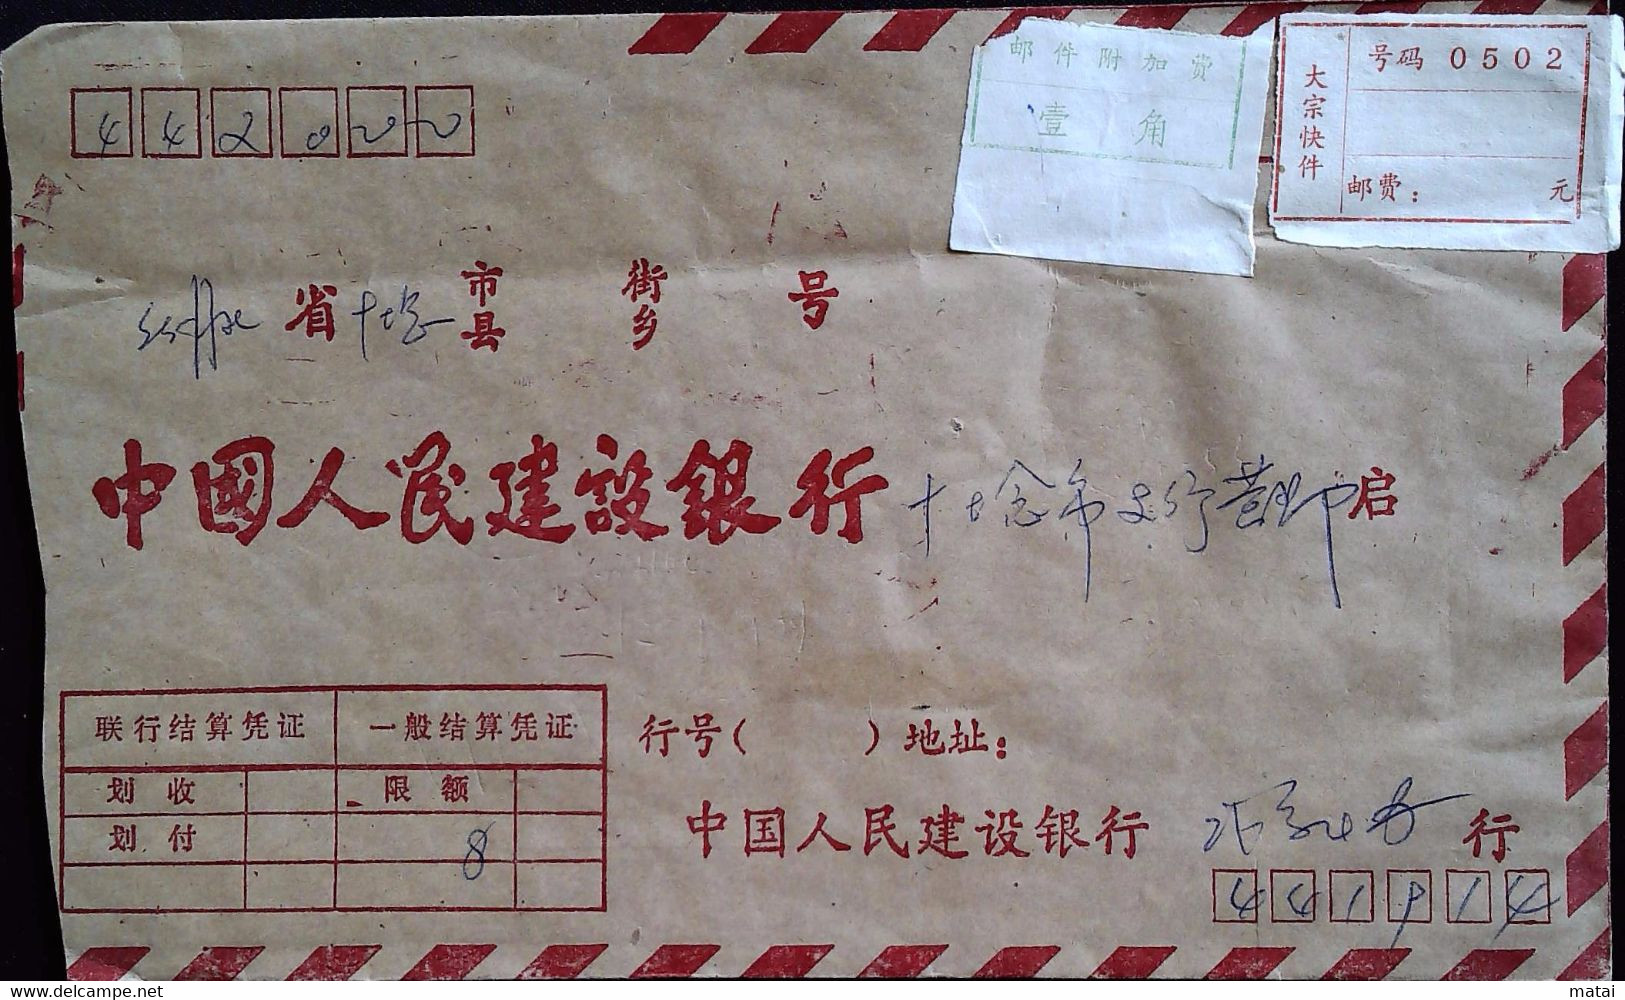 邮件附加费
壹 角
大宗快件
号码 0502
邮费： 元
442000
湖北省十堰市县 街乡 号
中國人民建設銀行十堰市支行营业部启
联行结算凭证 一般结算凭证
划 收 限 额
划 付 8
行号( )地址：
中国人民建设银行 行
441914
www.delcampe.net
matai